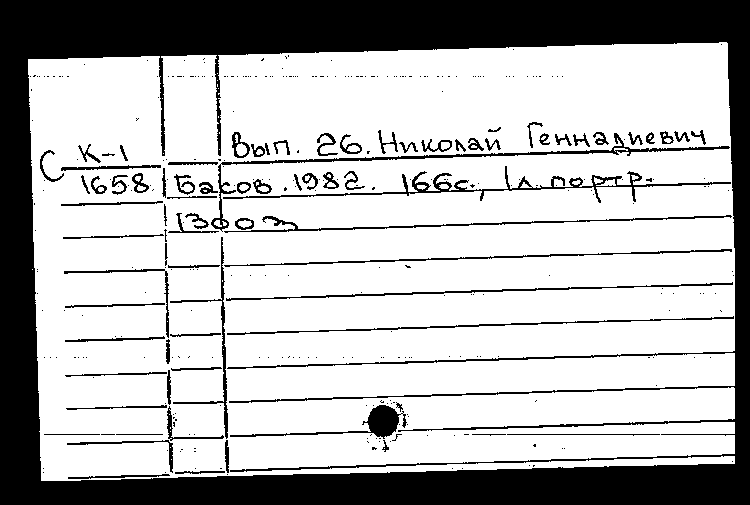 Вып. 26. Николай Геннадиевич
С К-1
1658 Басов. 1982. 166с., 1л. портр.
1300э